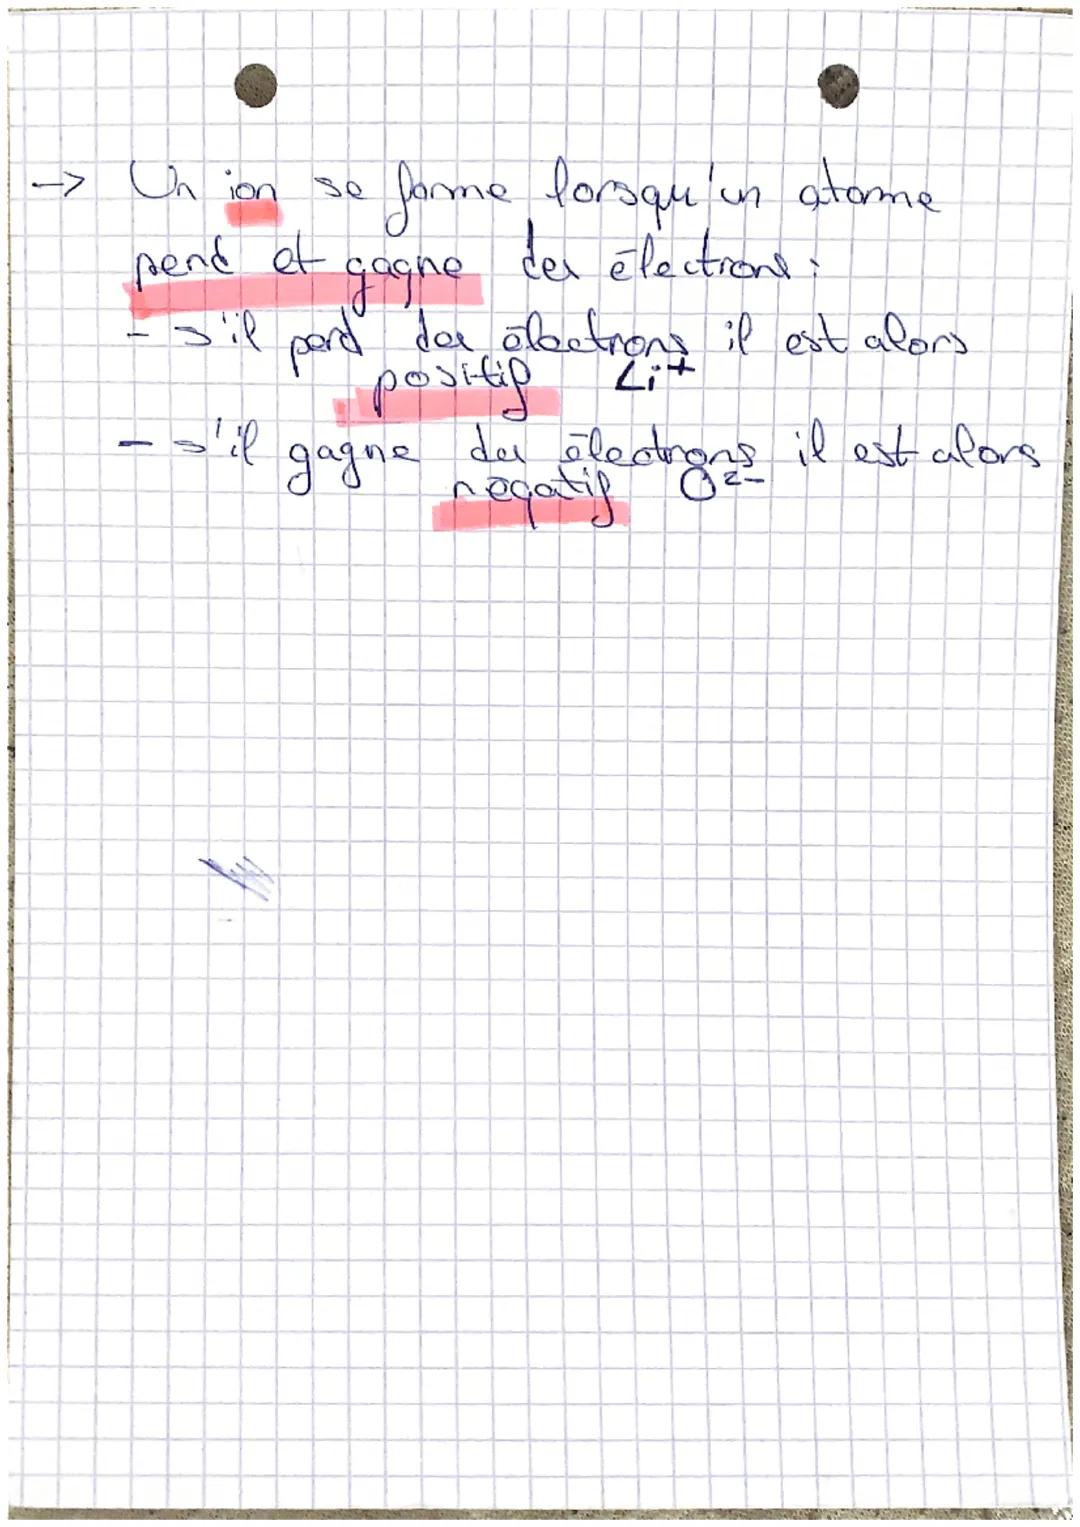 -> Un ion se forme lorsqu'un atome
perd et gagne des électrons :
- s'il perd des électrons il est alors
positif Li+
- s'il gagne des électrons il est alors
négatif O2-